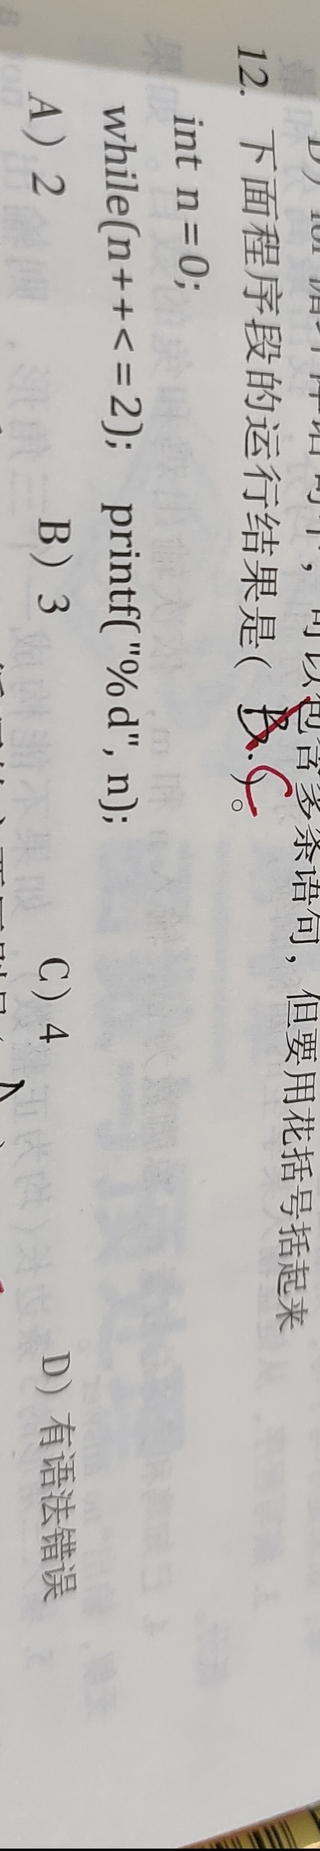 D) for 循环体语句中，可以包含多条语句，但要用花括号括起来
12. 下面程序段的运行结果是( B. ) C。
int n=0;
while(n++<=2); printf("%d", n);
A) 2 B) 3 C) 4 D) 有语法错误